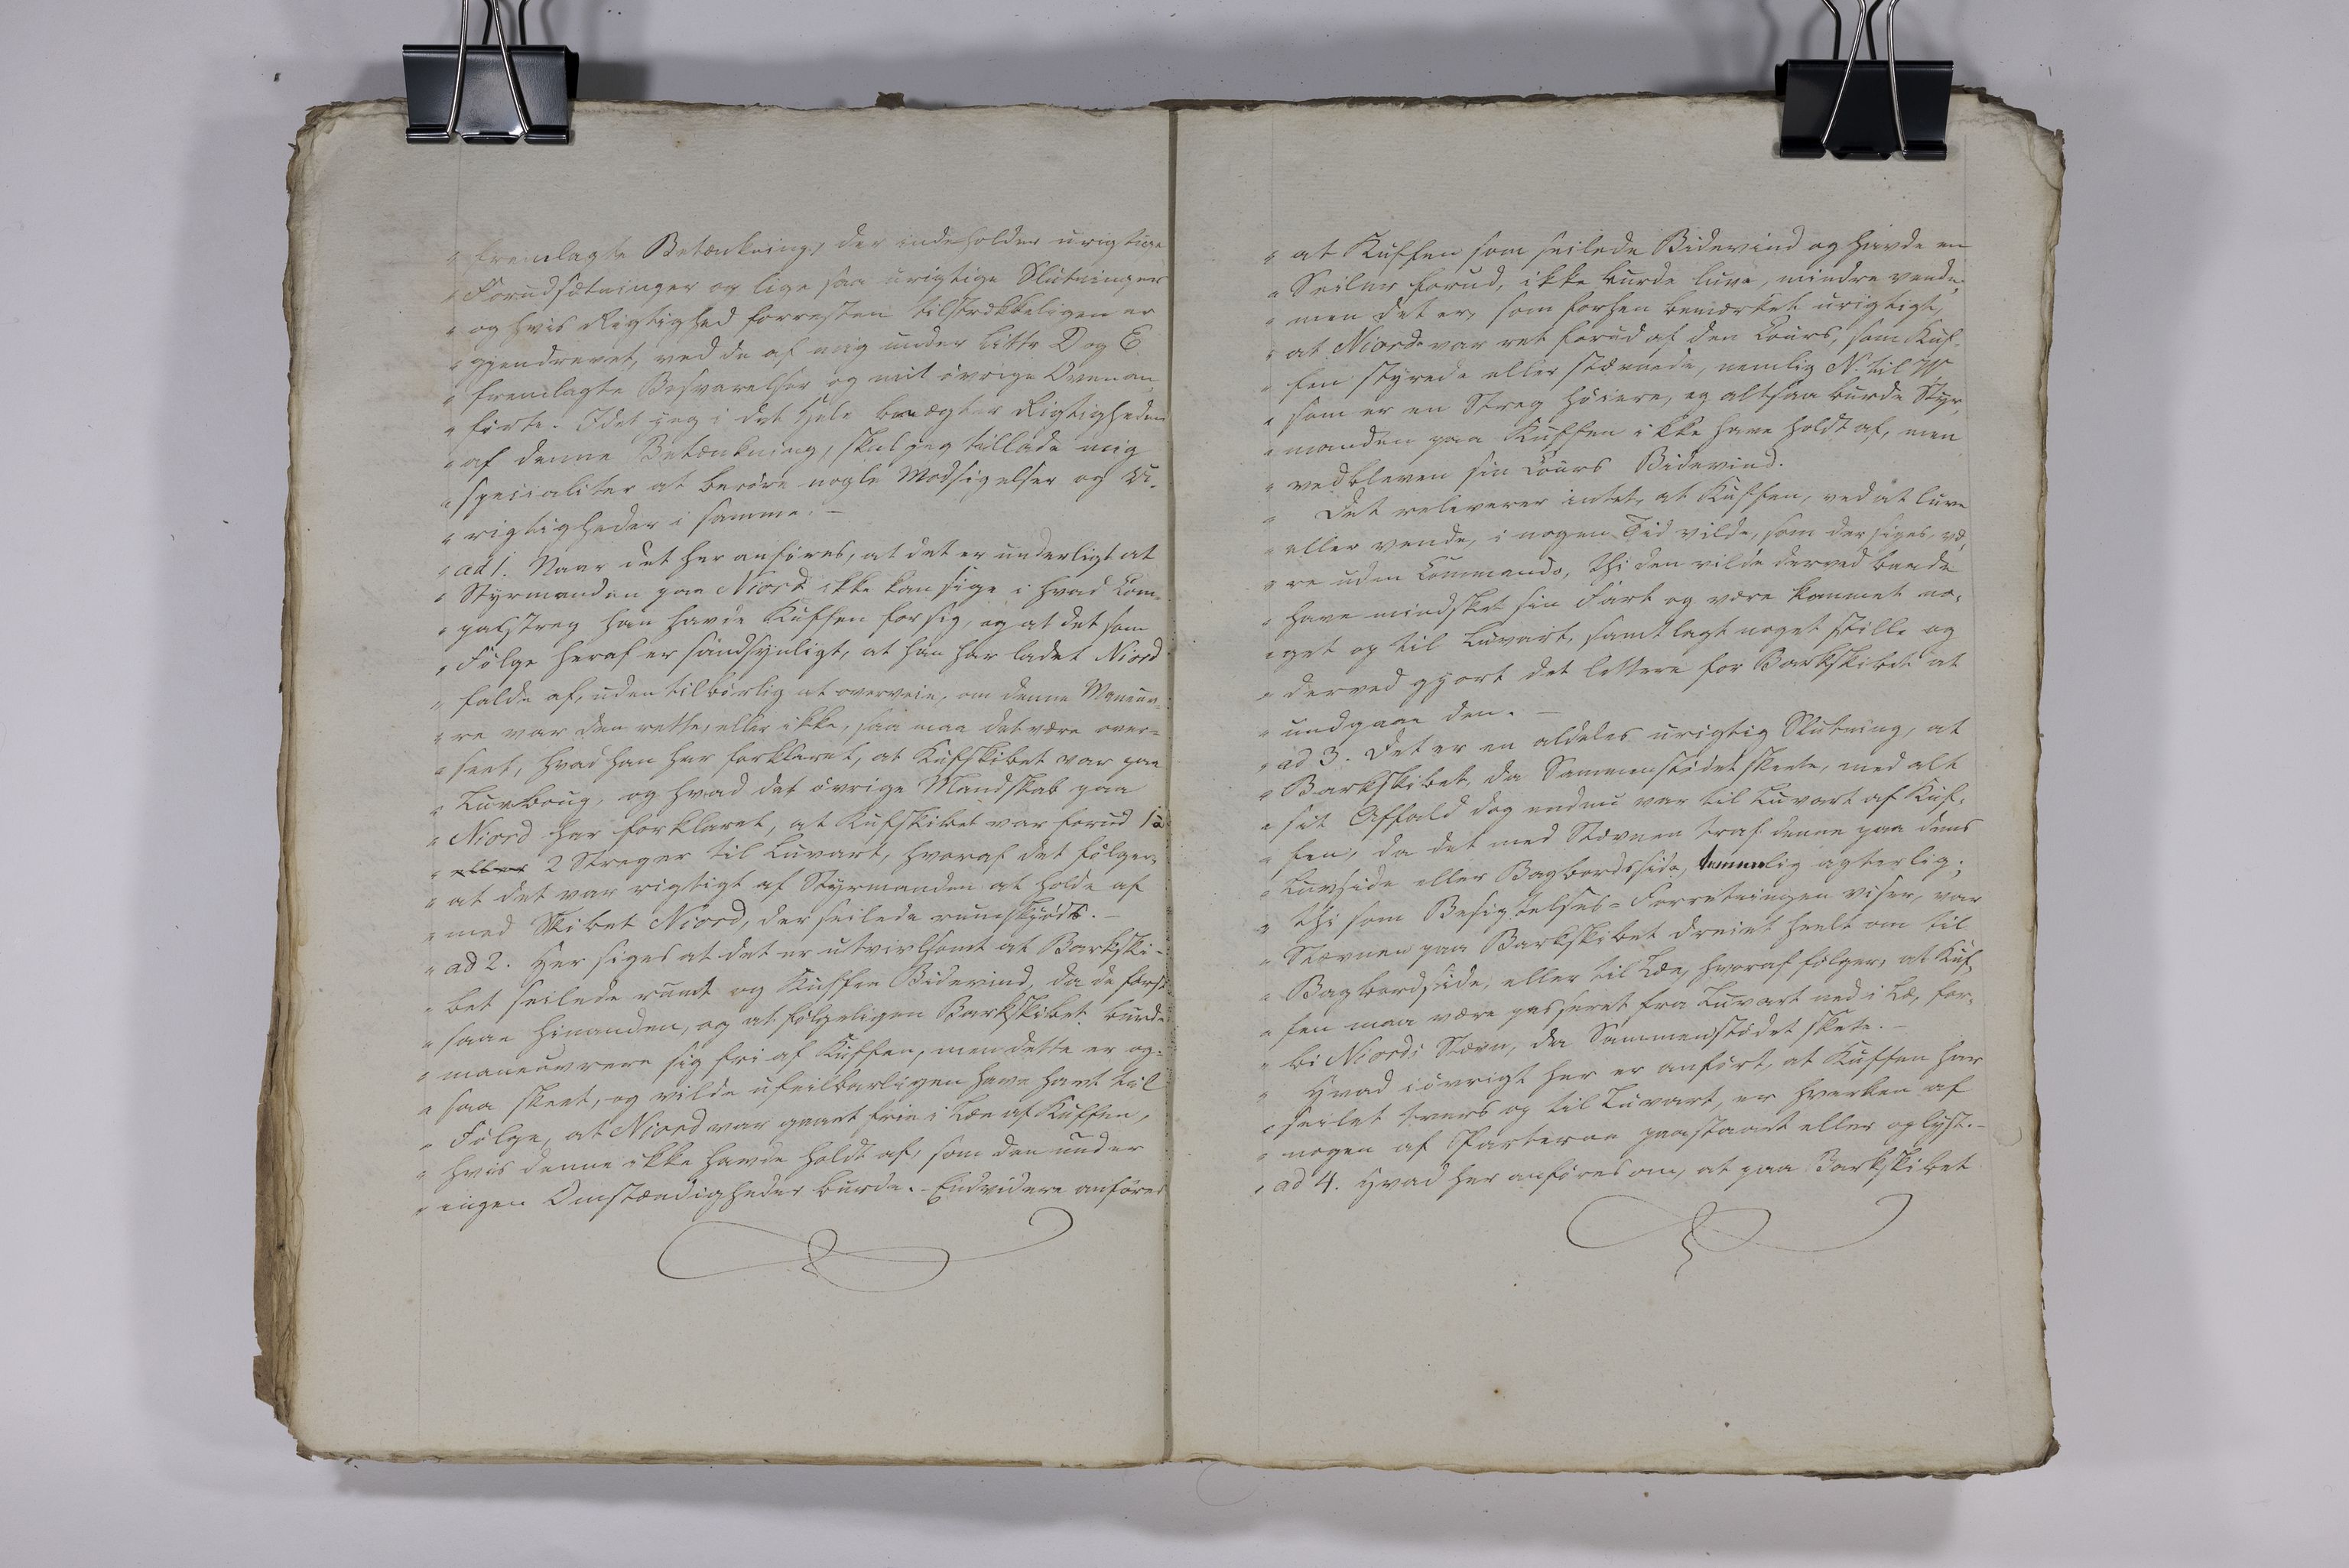 " fremlagte Betænkning, der indeholder urigtige
" Forudsætninger og lige saa urigtige Slutninger
" og hvis Rigtighed forresten tilstrækkeligen er
" gjendrevet, ved de af mig under Littr D og E
" fremlagte Besvarelser og mit øvrige Ovenan
" førte. Idet jeg i det Hele benægter Rigtigheden
" af denne Betænkning, skal jeg tillade mig
" specialiter at berøre nogle Modsigelser og U-
" rigtigheder i samme. -
" ad 1. Naar det her anføres, at det er underligt at
" Styrmanden paa Niord ikke kan sige i hvad Com-
" passtreg han havde Kuffen for sig, og at det som
" Følge heraf er sandsynligt, at han har ladet Niord
" falde af, uden tilbørlig at overveie, om denne Maneuv-
" re var den rette, eller ikke, saa maa det være over-
" seet, hvad han har forklaret, at Kufskibet var paa
" Luvboug, og hvad det øvrige Mandskab paa
" Niord har forklaret, at Kufskibet var forud 1 a
" eller 2 Streger til Luvart, hvoraf det følger,
" at det var rigtigt af Styrmanden at holde af
" med Skibet Niord, der seilede rumskjøds. -
" ad 2. Her siges at det er utvivlsomt at Barkski-
" bet seilede rumt og Kuffen Bidevind, da de først
" saae hinanden, og at følgeligen Barkskibet burde
" maneuvrere sig fri af Kuffen, men dette er og-
" saa skeet, og vilde ufeilbarligen have havt til
" Følge, at Niord var gaaet frie i Læ af Kuffen,
" hvis denne ikke havde holdt af, som den under
" ingen Omstændigheder burde. Endvidere anføres
" at Kuffen som seilede Bidevind og havde en
" Seiler forud, ikke burde luve, mindre vende,
" men det er, som forhen bemærket urigtigt,
" at Niord var ret forud af den Cours, som Kuf-
" fen styrede eller stævnede, nemlig N. til W
" som er en Streg høiere, og altsaa burde Styr-
" manden paa Kuffen ikke have holdt af, men
" vedbleven sin Cours Bidevind.
" Det releverer intet, at Kuffen, ved at luve
" eller vende, i nogen Tid vilde, som der siges, væ-
" re uden Commando, thi den vilde derved baade
" have mindsket sin Fart og være kommet no-
" get op til Luvart, samt lagt noget stille og
" derved gjort det lettere for Barkskibet at
" undgaae den. -
" ad 3. Det er en aldeles urigtig Slutning, at
" Barkskibet, da Sammenstødet skeete, med alt
" sit Affald dog endnu var til Luvart af Kuf-
" fen, da det med Stævnen traf denne paa dens
" Luvside eller Bagbordsside, temmelig agterlig;
" thi som Besigtelses-Forretningen viser, var
" Stævnen paa Barkskibet dreiet heelt om til
" Bagbordside, eller til Læ, hvoraf følger, at Kuf-
" fen maa være passeret fra Luvart ned i Læ, for-
" bi Niords Stævn, da Sammenstødet skete. -
" Hvad iøvrigt her er anført, at Kuffen har
" seilet tvers og til Luvart, er hverken af
" nogen af Parterne paastaaet eller oplyst. -
" ad 4. Hvad her anføres om, at paa Barkskibet